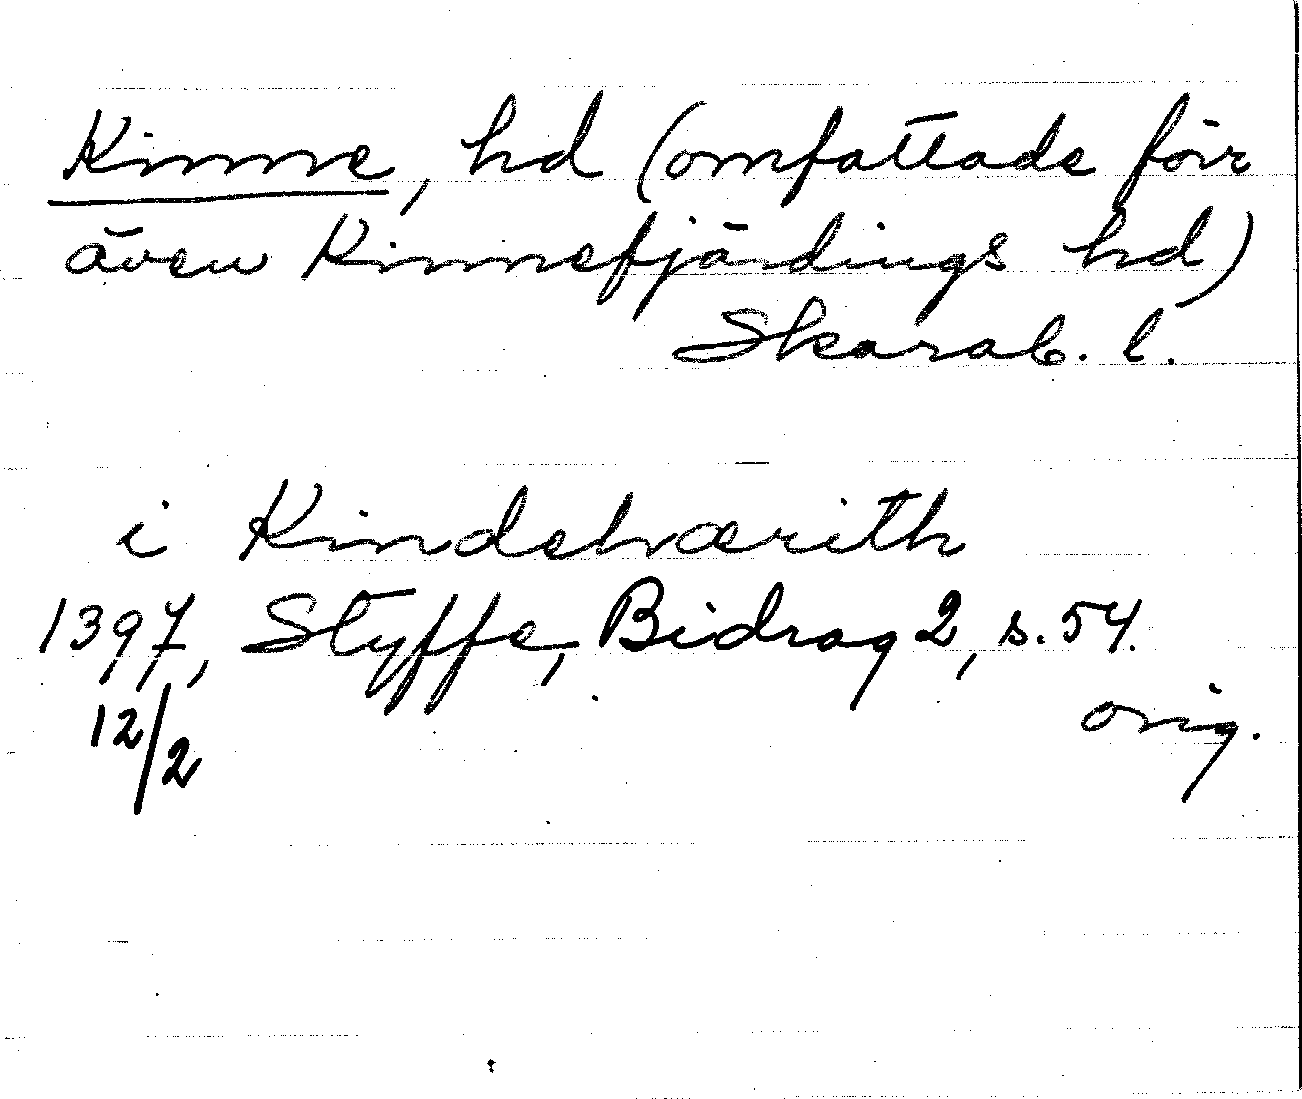 Kinne, hd (omfattade förr
även Kinnefjärdings hd)
Skarab. l.
i Kindehværith
1397, Styffe, Bidrag 2, s. 54.
12/2
orig.